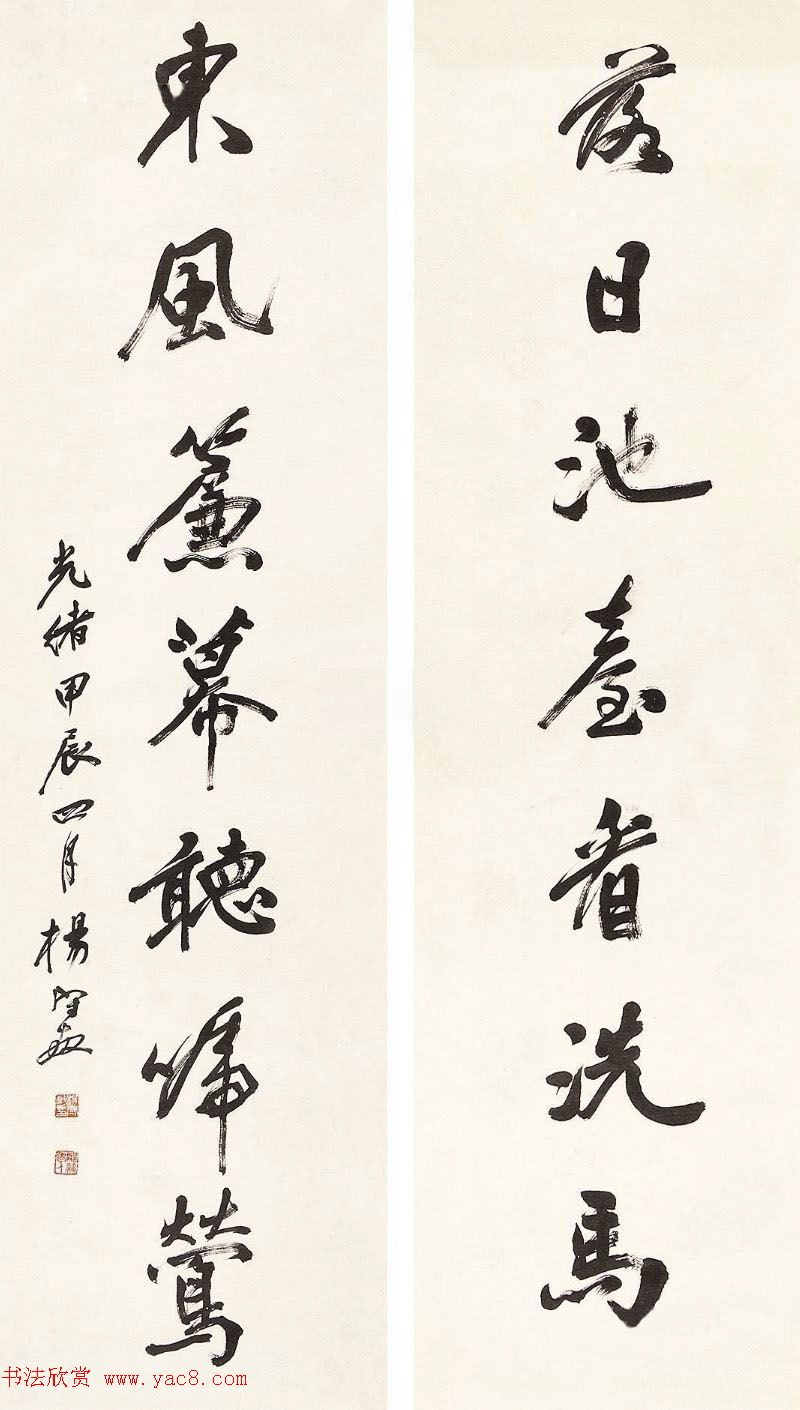 落日池臺看洗馬
東風簾幕聽啼鶯
光緒甲辰四月楊守敬
书法欣赏 www.yac8.com